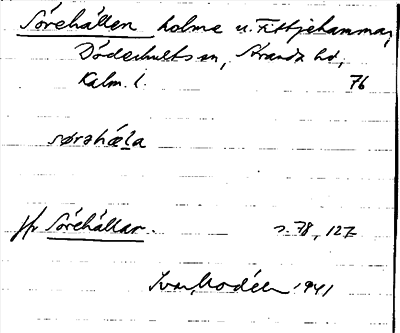 Sörehällen holme u. Fittjehammar,
Döderhults sn, Stranda hd,
Kalm. l. 76
sørəhæla
jfr Sörehällar. s. 78, 127
Ivar Modéer 1941